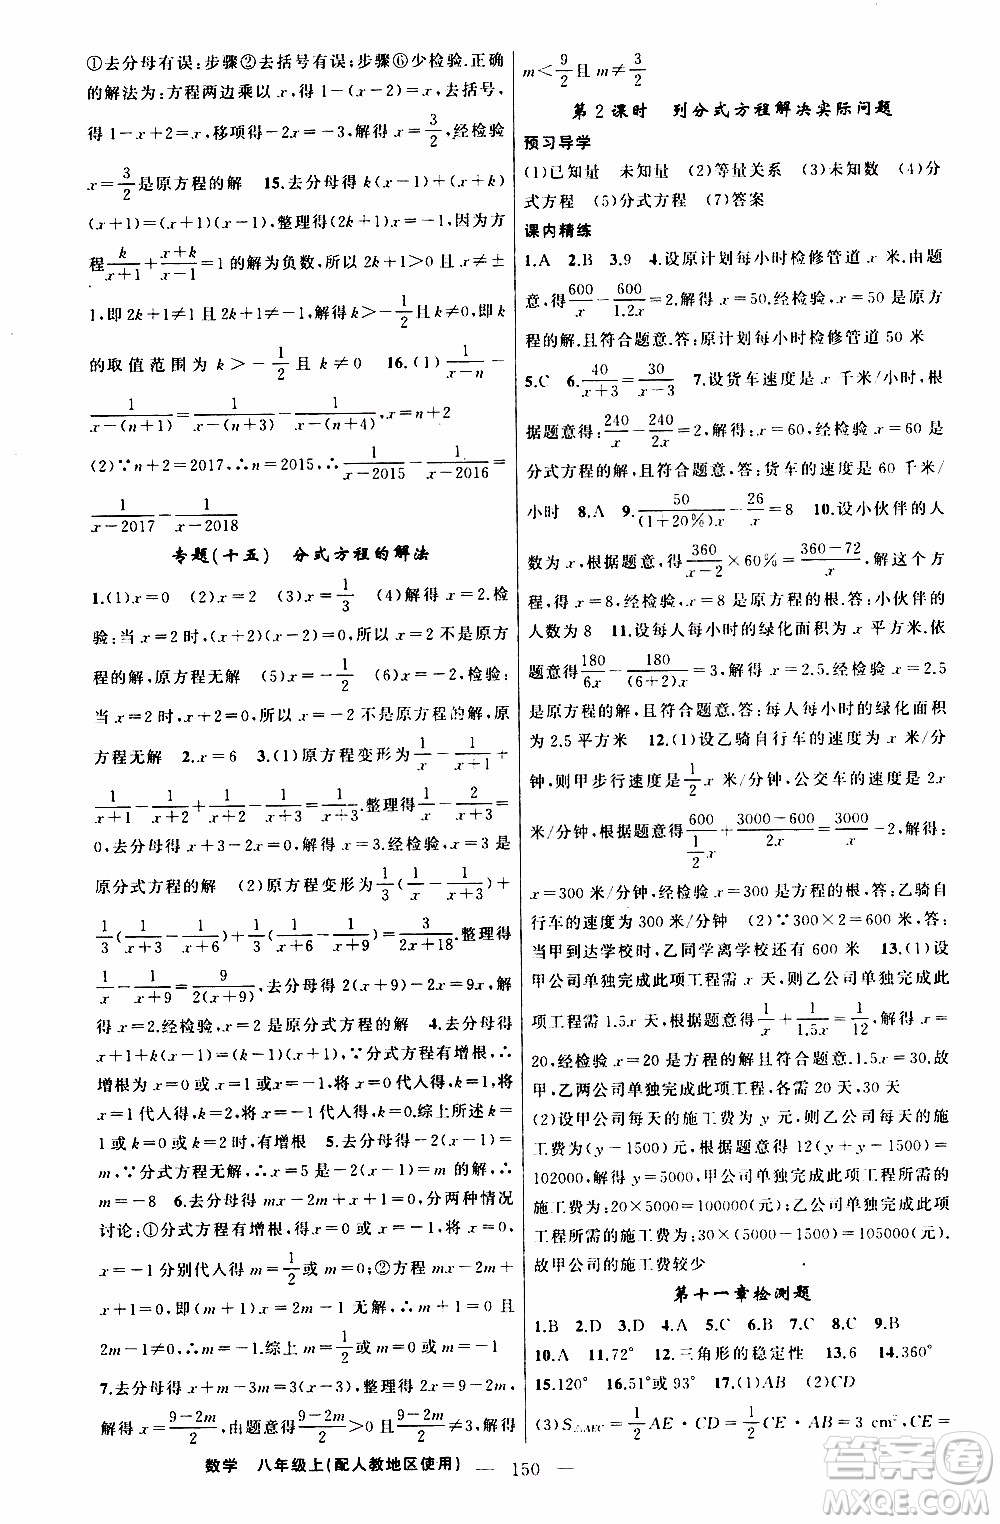 ①去分母有误;步骤②去括号有误;步骤⑥少检验.正确
的解法为:方程两边乘以x,得1-(x-2)=x,去括号,
得1-x+2=x,移项得-2x=-3,解得x=3/2,经检验
x=3/2是原方程的解 15.去分母得k(x-1)+(x+k)
(x+1)=(x+1)(x-1),整理得(2k+1)x=-1,∵方
程k/(x+1)+(x+k)/(x-1)=1的解为负数,所以2k+1>0且x≠±
1,即2k+1≠1且2k+1>0,解得k>-1/2且k≠0,即k
的取值范围为k>-1/2且k≠0 16.(1)1/(x-n)-
1/(x-(n+1))=1/(x-(n+3))-1/(x-(n+4)),x=n+2
(2)∵n+2=2017,∴n=2015,∴1/(x-2015)-1/(x-2016)=
1/(x-2017)-1/(x-2018)
专题(十五) 分式方程的解法
1.(1)x=0 (2)x=2 (3)x=1/3 (4)解得x=2.检
验:当x=2时,(x+2)(x-2)=0,所以x=2不是原方
程的解,原方程无解 (5)x=-1/2 (6)x=-2,检验:
当x=2时,x+2=0,所以x=-2不是原方程的解,原
方程无解 2.x=6 3.(1)原方程变形为1/x-1/(x+1)+
1/(x+1)-1/(x+2)+1/(x+2)-1/(x+3)=1/(x+3).整理得1/x-2/(x+3)=
0,去分母得x+3-2x=0,解得x=3.经检验,x=3是
原分式方程的解 (2)原方程变形为1/3(1/x-1/(x+3))+
1/3(1/(x+3)-1/(x+6))+1/3(1/(x+6)-1/(x+9))=3/(2x+18).整理得
1/x-1/(x+9)=9/(2(x+9)),去分母得2(x+9)-2x=9x,解
得x=2.经检验,x=2是原分式方程的解 4.去分母得
x+1+k(x-1)=(x-1)(x+k),∵分式方程有增根,∴
增根为x=1或x=-1,将x=-1代人得k=-1,将
x=1代人得k=0.综上所述,当分式方程有增根时,k=
1或k=-1时,分式方程有增根 5.去分母得3x-2(x-1)=
m,∵分式方程无解,∴x=5是增根,代人得x=5,
m=-8 6.去分母得mx-1+m=2x,分两种情况
讨论:①分式方程有增根,得x=0或x=-1,将x=0或
x=-1分别代人得m=1/2或m=0;②方程mx-1+m-
2x=0,即(m+1)x=2m,无解,∴m+1=0,且
2m≠0,解得m=-1,综上可得m=1/2或m=0或m=-1
7.去分母得x+m-3m=2x-9,整理得2x=9-2m,
解得x=(9-2m)/2,由题意得(9-2m)/2>0且(9-2m)/2≠3,解得
数学 八年级上(配人教地区使用) — 150 —
m<9/2且m≠3/2
第2课时 列分式方程解决实际问题
预习导学
(1)已知量 未知量 (2)等量关系 (3)未知数 (4)分
式方程 (5)分式方程 (7)答案
课内精练
1.A 2.B 3.9 4.设原计划每小时检修管道x米,由题
意,得600/x-600/1.2x=2,解得x=50,经检验,x=50是原方
程的解.且符合题意.答:原计划每小时检修管道50米
5.C 6.40/(x+3)=30/(x-3) 7.设货车速度是x千米/小时,根
据题意得:240/x-240/2x=2,解得:x=60,经检验,x=60是
分式方程的解,且符合题意,答:货车的速度是60千米/
小时 8.A 9.50/((1+20%)x)-26/x=8 10.设小伙伴的人
数为x,根据题意,得360/(x-2)×60%=(360-72)/x,解这个方
程,得x=8,经检验,x=8是原方程的根.答:小伙伴的
人数为8 11.设每人每小时的绿化面积为x平方米.依
题意得180/6x-180/((6+2)x)=3,解得x=2.5.经检验x=2.5
是原方程的解,且符合题意.答:每人每小时的绿化面积
为2.5平方米 12.(1)设乙骑自行车的速度为x米/分
钟,则甲步行速度是1/2x米/分钟,公交车的速度是2x
米/分钟,根据题意得600/(1/2x)+(3000-600)/2x=3000/x-2,解得:
x=300米/分钟,经检验x=300是方程的根,答:乙骑自
行车的速度为300米/分钟 (2)∵300×2=600米,答:
当甲到达学校时,乙同学离学校还有600米 13.(1)设
甲公司单独完成此项工程需x天,则乙公司单独完成此
项工程需1.5x天,根据题意得1/x+1/1.5x=1/12,解得x=
20,经检验x=20是方程的解且符合题意.1.5x=30.故
甲,乙两公司单独完成此项工程,各需20天,30天
(2)设甲公司每天的施工费为y元,则乙公司每天的施
工费为(y-1500)元,根据题意得12(y+y-1500)=
102000,解得y=5000,甲公司单独完成此项工程所需的
施工费为20×5000=100000(元),乙公司单独完成此项
工程所需的施工费为:30×(5000-1500)=105000(元),
故甲公司的施工费较少
第十一章检测题
1.B 2.D 3.D 4.A 5.C 6.B 7.C 8.C 9.B
10.A 11.72° 12.三角形的稳定性 13.6 14.360°
15.120° 16.51°或93° 17.(1)AB (2)CD
(3)S△AEC=1/2AE·CD=1/2CE·AB=3 cm²,CE=
答案圈
MXQE.COM